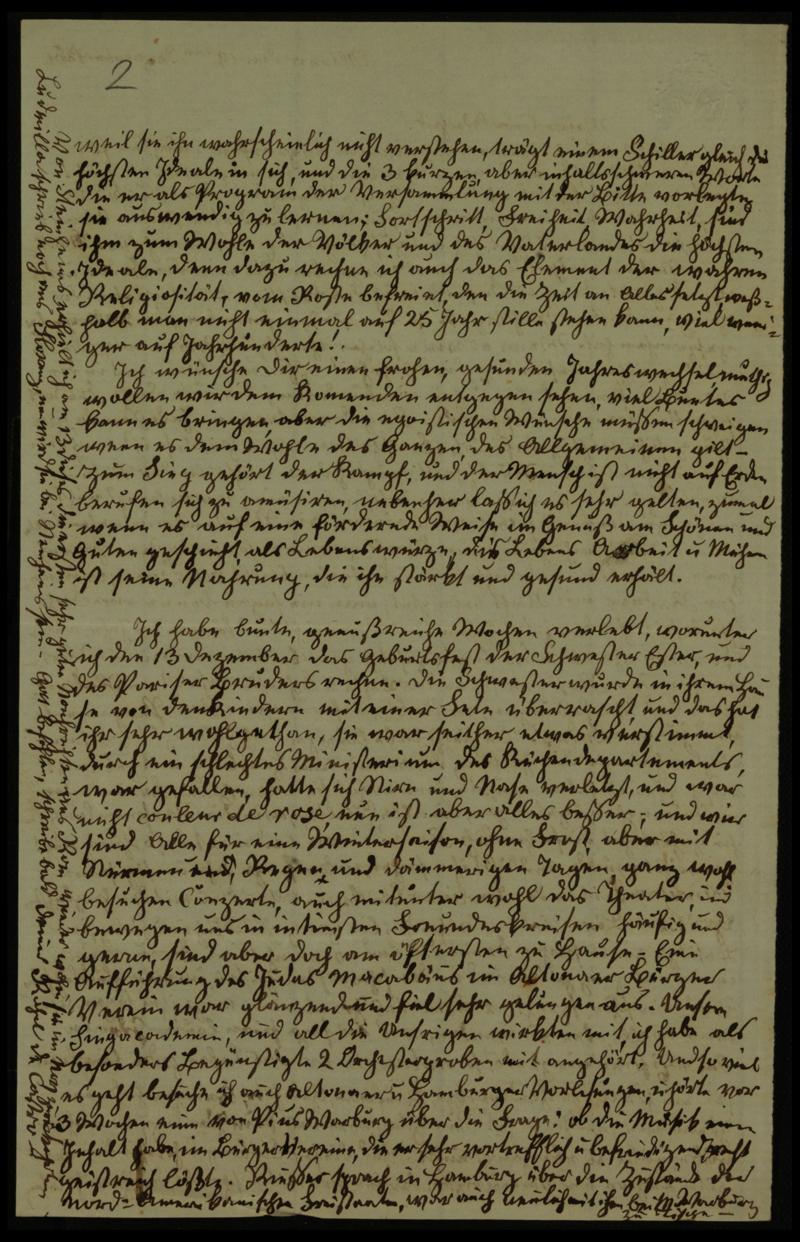 2
weil sie ihn wahrscheinlich nicht verstehen, trägt einem Schiller gleich die
höchsten Ideale in sich, und die 3 kurzen aber inhaltsschweren Worte
die er als Program der Versammlung mit der Bitte vorlegte
sie auswendig zu lernen; Fortschritt, Freiheit Wahrheit, sind
ihm zum Wohle der Völker und des Vaterlandes die höchsten
Ideale, denn dazu rechne ich auch das Element der wahren
Religiosität, vom Roste befreiet, den die Zeit an Alles setzt weß-
halb man nicht einmal auf 25 Jahr stille stehen kann, viel weni-
ger auf Jahrhunderte!
Ich wünsche Dir einen frohen, gesunden Jahreswechsel, muthig
wollen wir dem Komenden entgegen sehen, viel Buntes
kann es bringen aber die egoistischen Wünsche müssen schweigen
wenn es dem Wohle des Ganzen, des Allgemeinen gilt -
Zum Sieg gehört der Kampf, und der Mensch ist nicht auf Erden
berufen sich zu amüsiren, nebenher lass ich es sehr gelten, zumal
wenn es auf eine fördernde Weise im Genuß am Schönen und
Guten geschieht, als Lebenswürze, des Lebens Arbeit u Mühen
ist seine Nahrung, die ihn stärkt und gesund erhält.
Ich habe bunte, genußreiche Wochen verlebt, worunter
ich den 13 Dezember das Geburtsfest der Schwester Ester, und
des Pariser Bruders rechne. Die Schwester wurde in ihrem Hau
se von den Kindern mit einer Fete überrascht, und das hat
ihr sehr wohlgethan, sie war seither etwas verstimmt,
durch ein schlechtes Ministerium des Küchendepartements,
war gefallen, hatte sich Stirn und Nase verletzt, und war
nicht couleur de rose, nun ist aber alles besser; und wir
sind Alle für eine Wintersaison, ohne Frost, aber mit
Stürmen und Regen, und dämmerigen Tagen, ganz wohl
besuchen Conzerte, auch mitunter wohl das Theater, und
bewegen uns in intimsten Freundeskreisen häufig und
gerne, sind aber doch am öftersten zu Hause. Eine
Aufführung des Judas Macabäus im Altonaer Bürger
Verein war glänzend und fiel sehr gelungen aus. Unsere
Singacademie, und all die Unsrigen wirkten mit, ich habe als
besonders Begünstigte 2 Orchesterproben mit angehört. Und so viel
es geht besuche ich auch Altonaer u Hamburger Vorlesungen, u hörte vor
3 Wochen eine von Pius Warburg über die Frage: ob die Musik einen
Inhalt habe, im Bürger Vereine, die er sehr vortrefflich u befriedigend, recht
geistreich lößte. Russes sprach in Hamburg über die Zustände der
Nord-Amerikanischen Freistaaten, war auch neulich mit ihm bei Warburg
zu Tische